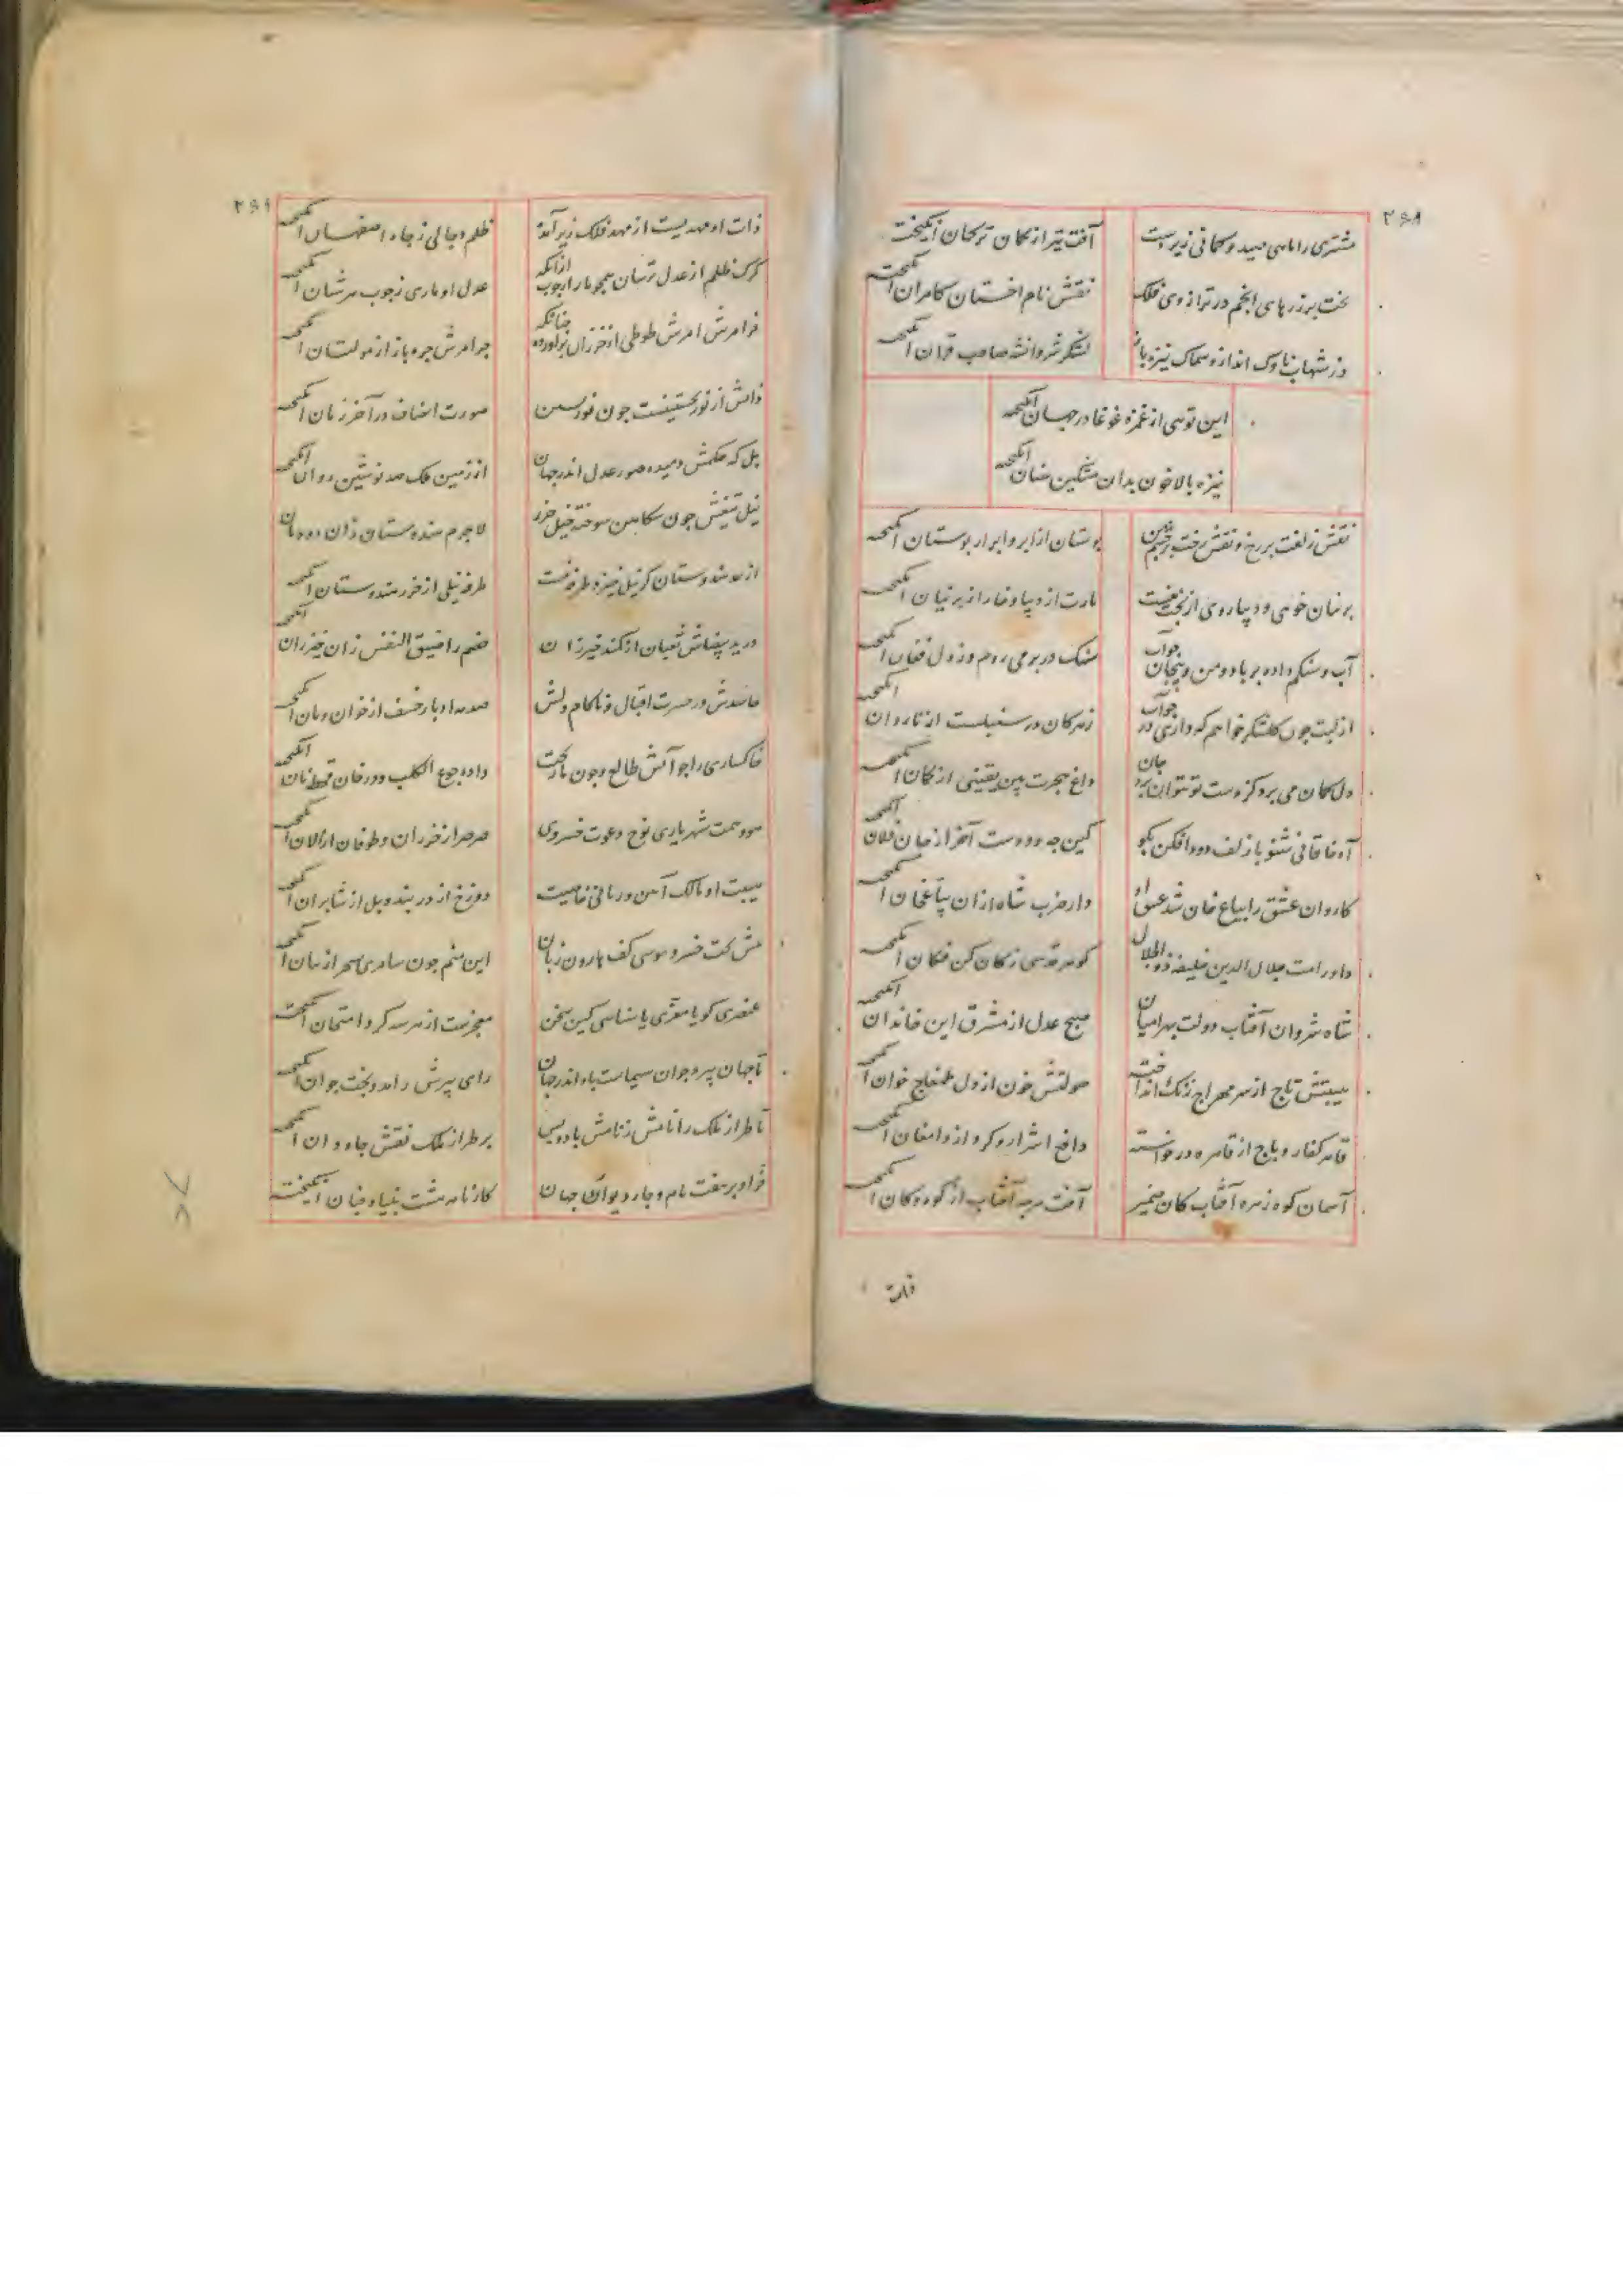 ۲۶۸
مشتری را ماهی صید و کمانی زیر دست
آفت تیر از کمان ترکمان انگیخت
بخت بر زرهای انجم در ترازوی فلک
نقش نام اخستان کامران انگیخت
وز شهاب ناوک انداز و سماک نیزه باز
لشکر شروانشه صاحب قران انگیخته
این توئی از غمزه غوغا در جهان انگیخته
نیزه بالا خون بدان مشکین سنان انگیخته
نقش زلفت بر رخ و نقش رخت بر چشم من
بوستان از ابر و ابر از بوستان انگیخته
پرنیان خوئی و دیبا روی از بخت منست
مارت از دیبا و خار از پرنیان انگیخته
آب و سنگم داده بر باد و من و پیچان
سنگ در بر می روم وز دل فغان انگیخته
از لبت چون گلشکر خواهم که داری در جواب
زهر کان در سنبلست از ناردان انگیخته
دل کمان می برد کز دست تو نتوان برد جان
داغ هجرت بین یقینی از گمان انگیخته
آه خاقانی شنو با زلف دود افکن بگو
کین چه دودست آخر از جان فلان انگیخته
کاروان عشق را بیاع جان شد عشق او
دار ضرب شاه ازان بیاع جان انگیخته
داور امت جلال الدین خلیفه ذوالجلال
گوهر قدسی ز کان کن فکان انگیخته
شاه شروان آفتاب دولت بهرامیان
صبح عدل از مشرق این خاندان انگیخته
هیبتش تاج از سر مهراج زنگ انداخته
صولتش خون از دل طمغاج خوان انگیخته
قاهر کفار و باج از قاهره درخواسته
دافع اشرار و گرد از دامغان انگیخته
آسمان کوه زهره آفتاب کان ضمیر
آفت هر چه آفتاب از کوه و کان انگیخته
۲۶۹
ذات او مهدیست از مهد فلک زیر آمده
ظلم دجالی ز چاه اصفهان انگیخته
گرگ ظلم از عدل ترسان همچو مار از چوب ازانکه
عدل او ماری ز چوب سرشبان انگیخته
چرا مرش جره باز از مولتان انگیخته
ذاتش از نور نخستینست چون نور پسین
صورت انصاف در آخر زمان انگیخته
پیل که حکمش دمیده صور عدل اندر جهان
از زمین ملک صد نوشین روان انگیخته
نیل تیغش چون سکاهن سوخته خیل خزر
لاجرم هندوستان زان دودمان
از هندوستان گر نیل خیزد طرفه نیست
طرفه نیلی از خزر هندوستان انگیخته
در ید بیضاش ثعبان از کمند خیزران
خصم را ضیق النفس زان خیزران انگیخته
حاسدش در حسرت اقبال و ناکام دلش
صدمه ادبار خسف از خوان و مان انگیخته
خاکساری را چو آتش طالع و چون باد بخت
داده جوع الکلب و در خان قحط نان انگیخته
هود همت شهریاری نوح دعوت خسروی
صرصر از خزران و طوفان از الان انگیخته
هیبت او مالک آئین و زبانی خاصیت
دوزخ از دربند و پل از شابران انگیخته
پیش تخت خسرو موسی کف هارون زبان
این منم چون سامری سحر از بیان انگیخته
عنصری کو یا معزی یا سنائی کین سخن
معجزست از هر سه گرد امتحان انگیخته
تا جهان پیر و جوان سیماست باد اندر جهان
رای پیرش را مدد بخت جوان انگیخته
تا طراز ملک را نامش ز نامش باد و بس
بر طراز ملک نقش جاودان انگیخته
فر او بر هفت بام و چار دیوان جهان
کارنامه هشت بنیاد جنان انگیخته